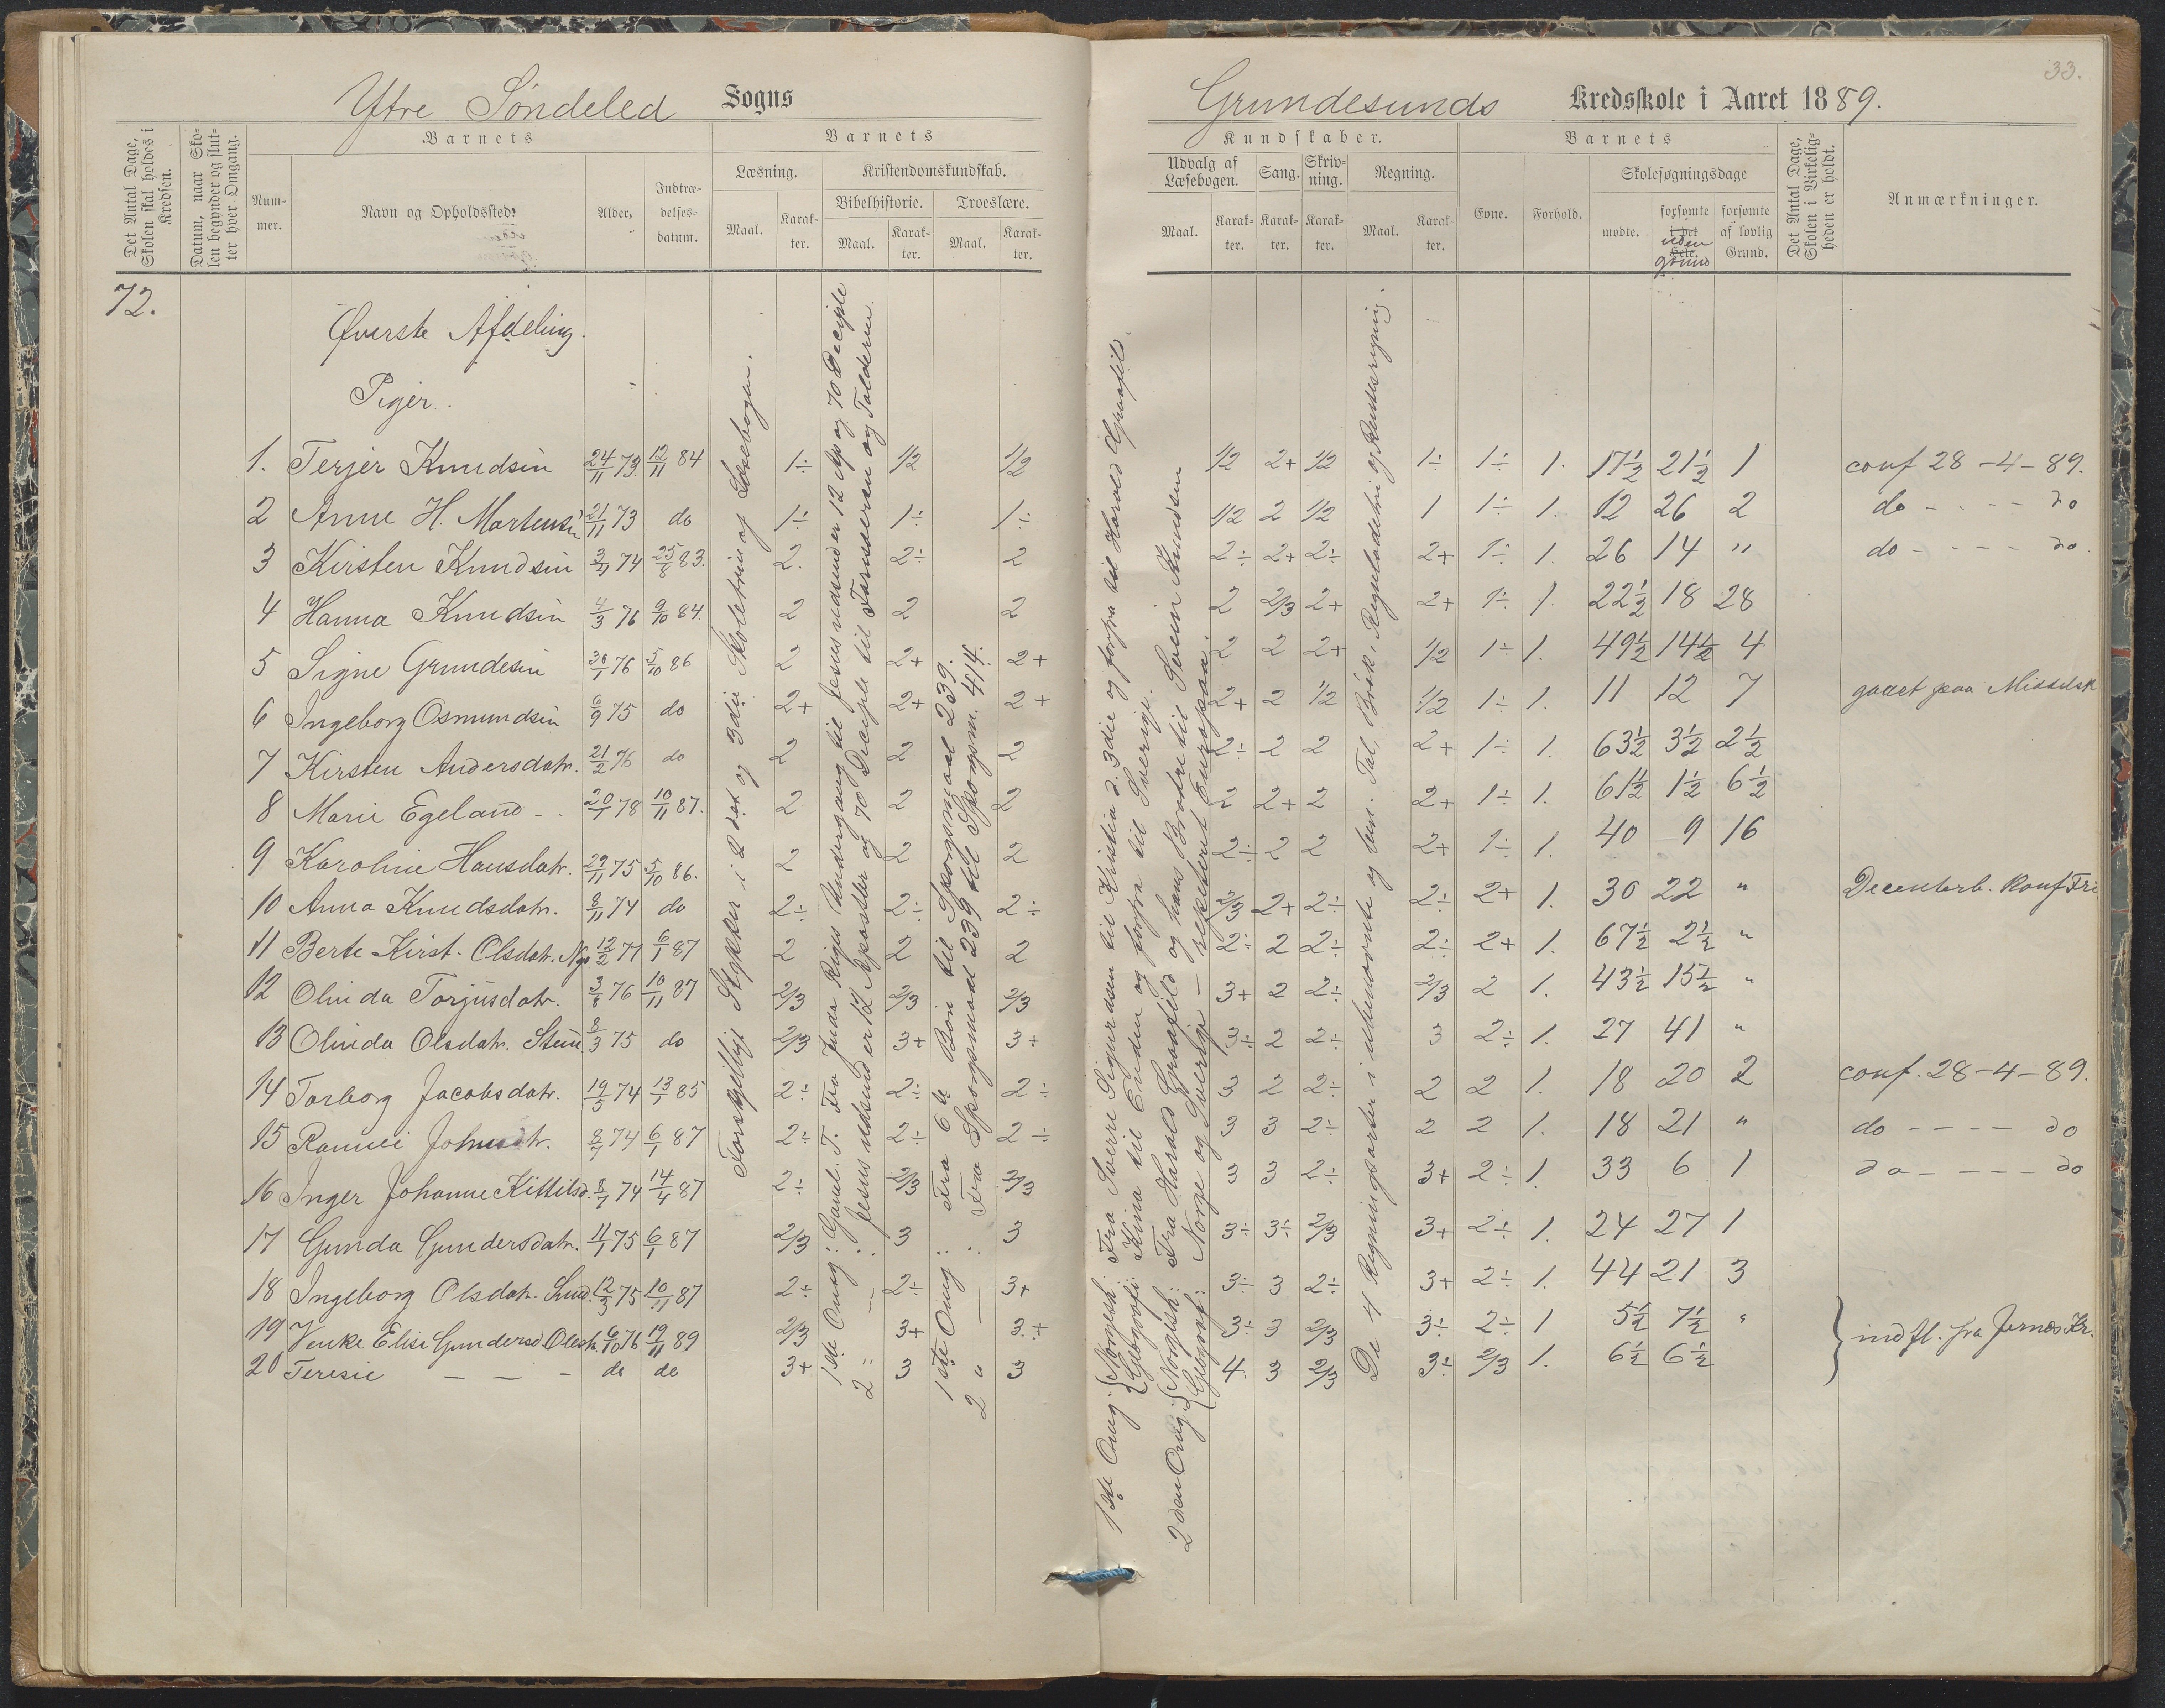 Ytre Søndeled Sogns
Det Antal Dage, Skolen skal holdes i Kredsen.
Datum, naar Skolen begynder og slutter hver Omgang.
Barnets
Nummer.
Navn og Opholdssted.
Alder.
Indtrædelsesdatum.
Barnets
Læsning.
Maal.
Karakter.
Kristendomskundskab.
Bibelhistorie.
Maal.
Karakter.
Troeslære.
Maal.
Karakter.
72.
Øverste Afdeling.
Piger.
1. Terjer Knudsen 24/11 73 12/11 84 1÷ 1/2 1/2
2 Anne H. Martens 21/11 73 do 1÷ 1÷ 1÷
3 Kirsten Knudsen 3/11 74 25/8 83. 2. 2÷ 2
4 Hanna Knudsen 4/3 76 9/10 84. 2 2 2
5 Signe Grundesen 30/1 76 5/10 86 2 2+ 2+
6 Ingeborg Osmundsen 6/9 75 do 2+ 2+ 2+
7 Kirsten Andersdatr. 21/2 76 do 2 2 2
8 Marie Egeland - - 20/1 78 10/11 87. 2 2 2
9 Karoline Hansdatr. 29/11 75 5/10 86. 2 2 2
10 Anna Knudsdatr. 8/11 74 do 2÷ 2÷ 2÷
11 Berte Kirst. Olsdatr. 12/2 77 6/1 87 2 2 2
12 Olinda Torjusdatr. 3/8 76 10/11 87 2/3 2/3 2/3
13 Olinda Olsdatr. 8/3 75 do 2/3 3+ 3+
14 Torborg Jacobsdatr. 19/5 74 13/1 85 2÷ 2÷ 2÷
15 Ramvei 8/7 74 6/1 87 2÷ 2÷ 2÷
16 Inger Johanne Kittilsd. 8/7 74 14/4 87 2÷ 2/3 2/3
17 Gunda Gundersdatr. 11/1 75 6/1 87 2/3 3 3
18 Ingeborg Olsdatr. 12/3 75 10/11 87 2÷ 2÷ 3+
19 Venke Elise Gundersd. 6/10 76 19/11 89 2/3 3+ 3+
20 Teresie — — - do do 3+ 3 3
Forskjellige Stykker i 2det og 3die Skoletrin og Læsebogen.
1ste Omg: Gaml. T. Fra Juda Riges Undergang til Jesus udsender 12 Ap og 70 Deciple
2 " — : Jesus udsender 12 Apostler og 70 Deciple til
1ste Omg: Fra 6te Bøn til Spørgsmaal 239.
2 " — : Fra Spørgsmaal 239 til Spørgsm. 414.
33.
Grundesunds Kredsskole i Aaret 1889.
Kundskaber.
Udvalg af Læsebogen.
Maal.
Karakter.
Sang.
Karakter.
Skrivning.
Karakter.
Regning.
Maal.
Karakter.
Barnets
Evne.
Forhold.
Skolesøgningsdage
mødte.
forsømte i det Hele.
uden grund
forsømte af lovlig Grund.
Det Antal Dage, Skolen i Virkeligheden er holdt.
Anmærkninger.
1ste Omg. Norgesh: Fra Sverre Sigurdsen til Kristian d. 3die og forfra til Harald Graafeld.
Geografi: Kina til Enden og forfra til Sverige.
2den Omg. Norgesh: Fra Harald Graafeld og hans Brødre til Svein Knudsen
Geograf: Norge og Sverige — repeteret Europa
De 4 Regningsarter i ubenævnte og ben. Tal, Brøk, Reguladetri og Rentesregning.
1/2 2+ 1/2 1÷ 1÷ 1. 17½ 21½ 1 conf 28-4-89.
1/2 2 1/2 1 1÷ 1. 12 26 2 do - - - - do
2÷ 2+ 2÷ 2+ 1÷ 1. 26 14 " do - - - - do.
2 2/3 2+ 2+ 1÷ 1. 22½ 18 28
2 2 2+ 1/2 1÷ 1. 49½ 14½ 4
2+ 2 1/2 1/2 1÷ 1. 11 12 7 gaaet paa Middelsk
2÷ 2 2 2+ 1÷ 1. 63½ 3½ 2½
2 2+ 2 2+ 1÷ 1. 61½ 1½ 6½
2÷ 2 2 2+ 1÷ 1. 40 9 16
2/3 2+ 2÷ 2÷ 2+ 1. 30 22 "
2÷ 2 2÷ 2÷ 2+ 1. 67½ 2½ "
3+ 2 2÷ 2/3 2 1. 43½ 15½ "
3÷ 2 2÷ 3 2÷ 1. 27 41 "
3 2 2÷ 2 2 1. 18 20 2 conf. 28-4-89.
3 3 2÷ 2 2 1. 18 21 " do - - - - do
3 3 2÷ 3+ 2÷ 1. 33 6 1 do - - - - do
3÷ 3÷ 2/3 3+ 2÷ 1. 24 27 1
3÷ 3 2÷ 3+ 2÷ 1. 44 21 3
3÷ 3 2/3 3÷ 2÷ 1 5½ 7½ " indfl. fra Jernæs Kr.
4. 3 2/3 3÷ 2/3 1. 6½ 6½